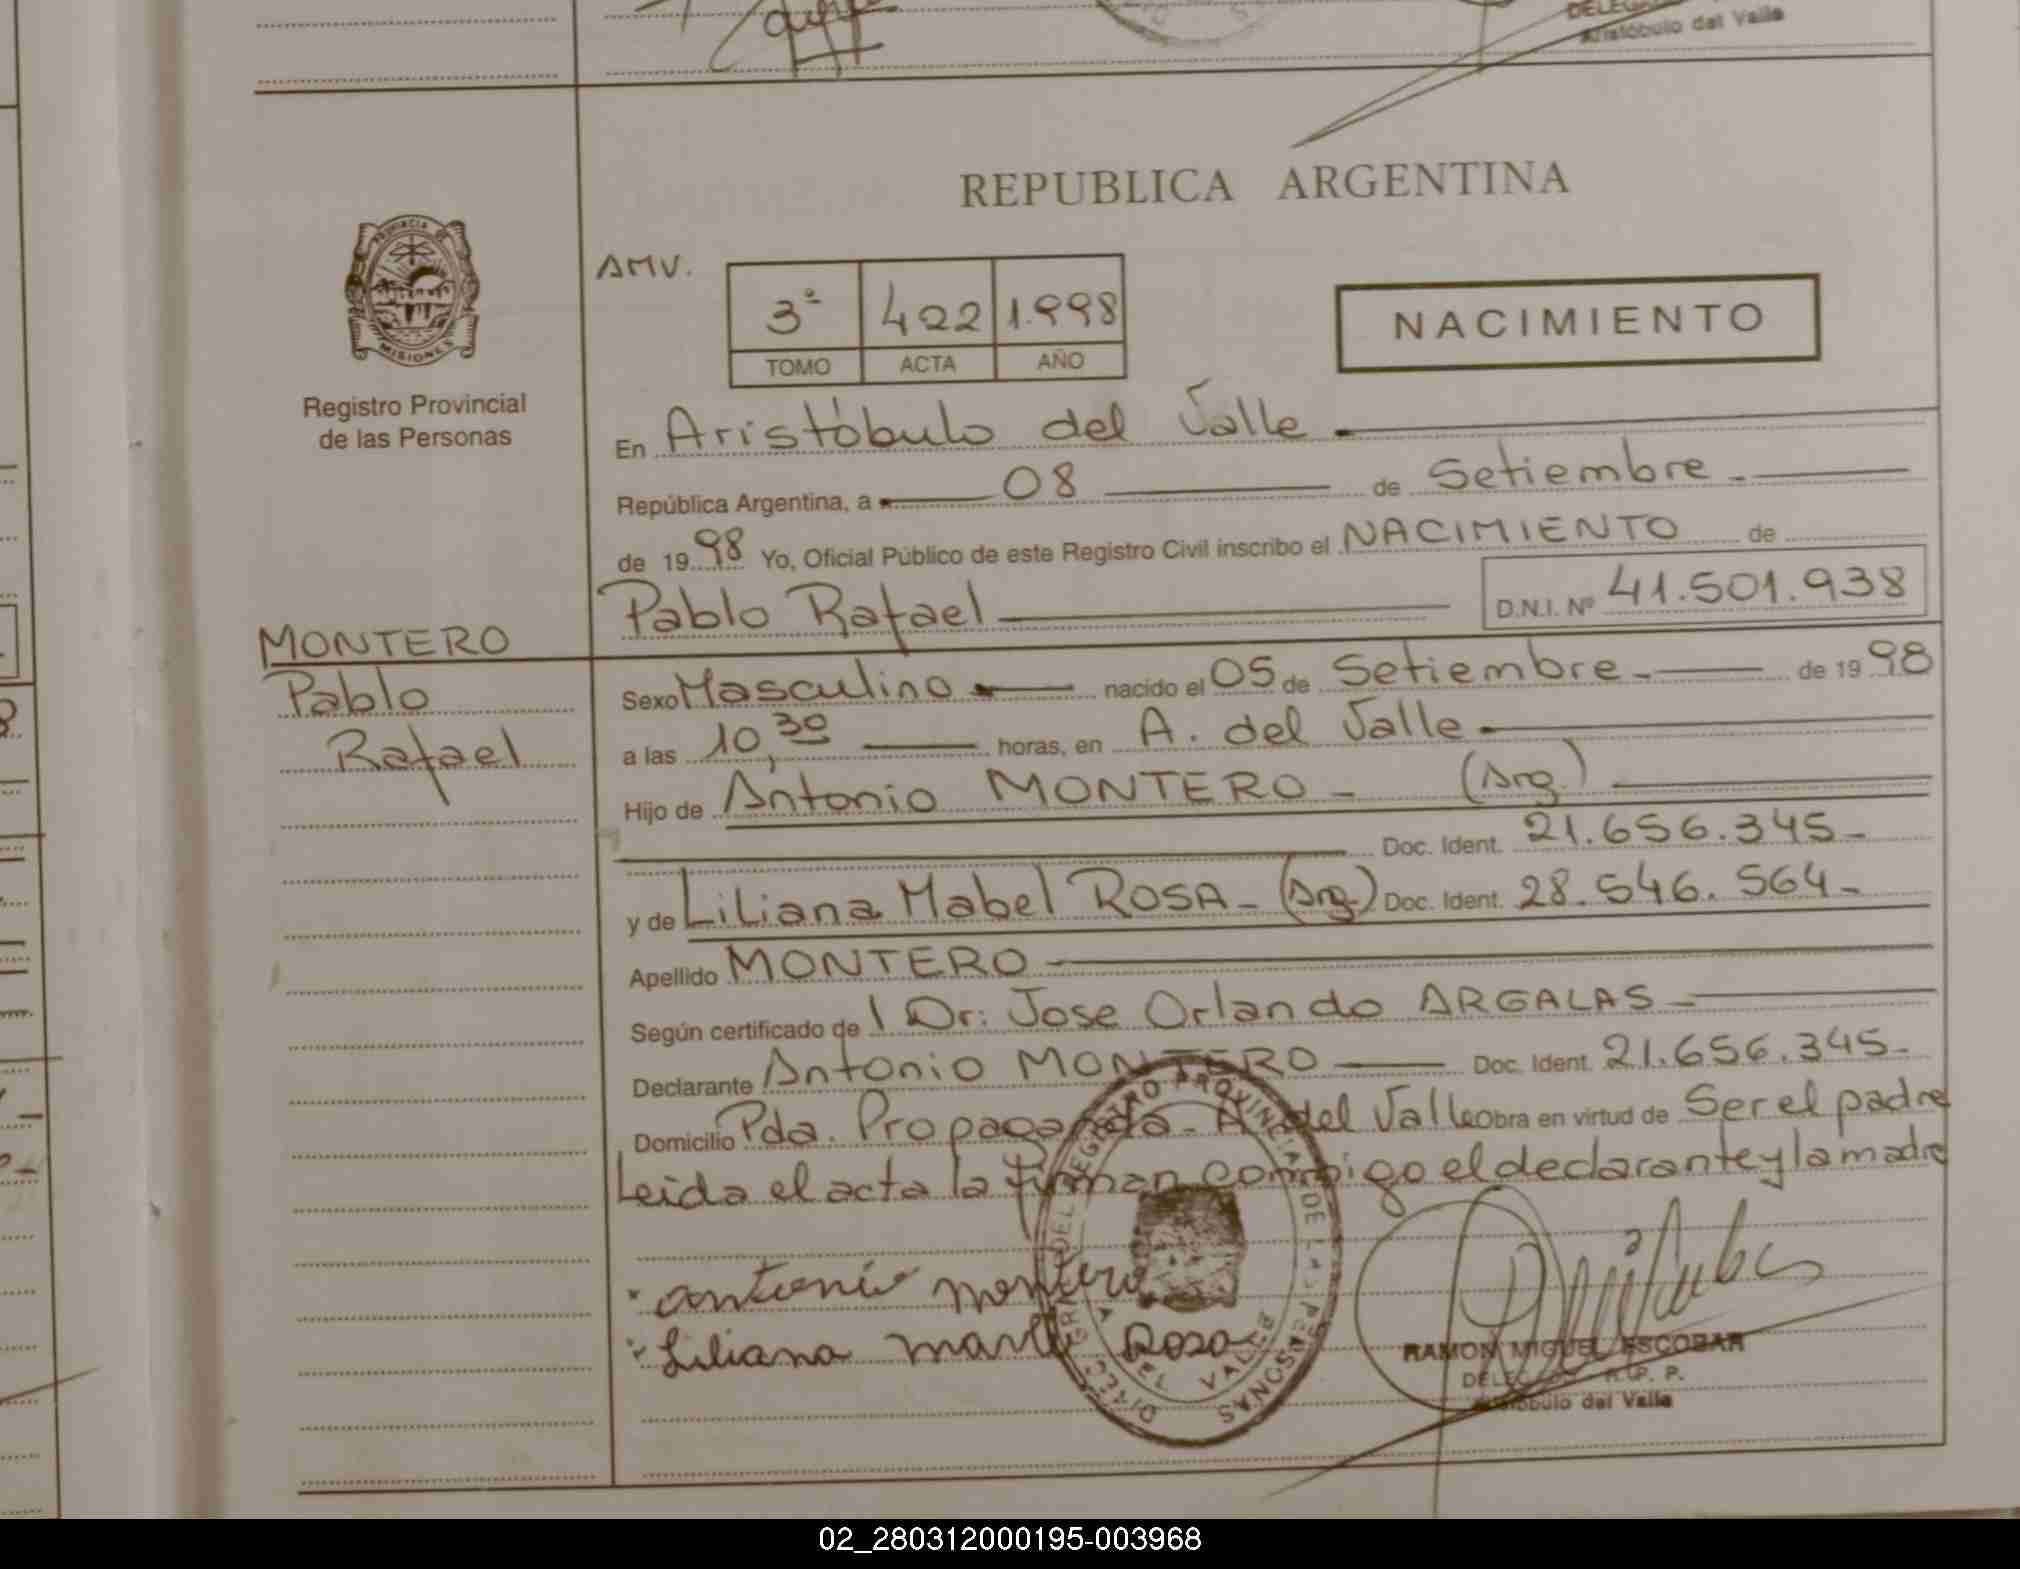 DELEG
Aristóbulo del Valle
REPUBLICA ARGENTINA
PROVINCIA DE
MISIONES
Registro Provincial
de las Personas
AMV.
3º 422 1.998
TOMO ACTA AÑO
NACIMIENTO
En Aristóbulo del Valle
República Argentina, a 08 de Setiembre
de 1998 Yo, Oficial Público de este Registro Civil inscribo el NACIMIENTO de
Pablo Rafael D.N.I. Nº 41.501.938
MONTERO
Pablo
Rafael
Sexo Masculino nacido el 05 de Setiembre de 1998
a las 10,30 horas, en A. del Valle
Hijo de Antonio MONTERO (Arg.)
Doc. Ident. 21.656.345
y de Liliana Mabel ROSA (Arg.) Doc. Ident. 28.546.564
Apellido MONTERO
Según certificado de l Dr: Jose Orlando ARGALAS
Declarante Antonio MONTERO Doc. Ident. 21.656.345
Domicilio Pda. Propaganda - A. del Valle Obra en virtud de Ser el padre
Leida el acta la firman conmigo el declarante y la madre
antonio montero
Liliana Rosa
DIREC. GRAL DEL REGISTRO PROVINCIAL DE LAS PERSONAS
A DEL VALLE
RAMON MIGUEL ESCOBAR
DELEGADO R. P. P.
Aristóbulo del Valle
02_280312000195-003968